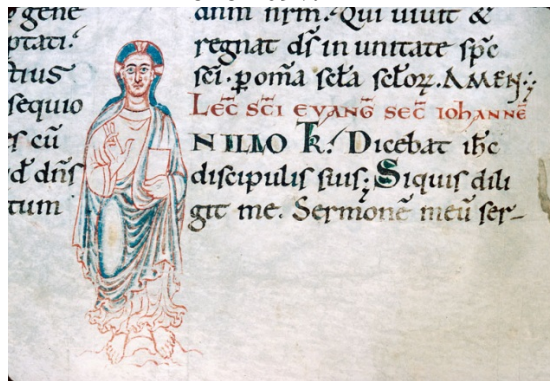 gene
ptati.
tius
sequio
s cū
d̄ dn̄s
tum
dnm nr̄m. Qui uiuit &
regnat d̄s in unitate sp̄c
sc̄i. p om̄a sc̄la sc̄loꝝ. AMEN;
Lec̄ sc̄i evang̅ sec̄ iohanne̅
N ILLO T̄. Dicebat ih̄c
discipulis suis; Siquis dili
git me. Sermonē meū ser-